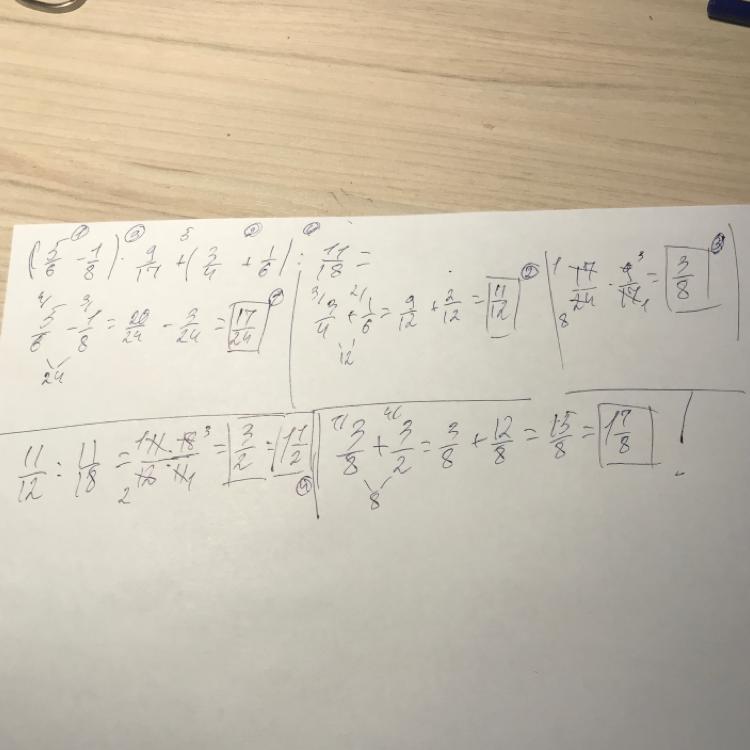 (5/6 - 1/8) · 9/17 + (3/4 + 1/6) : 11/18 =
5/6 - 1/8 = 20/24 - 3/24 = 17/24
24
3/4 + 1/6 = 9/12 + 2/12 = 11/12
12
17/24 · 9/17 = 3/8
11/12 : 11/18 = 11 · 18/12 · 11 = 3/2 = 1 1/2
3/8 + 3/2 = 3/8 + 12/8 = 15/8 = 1 7/8 !
8